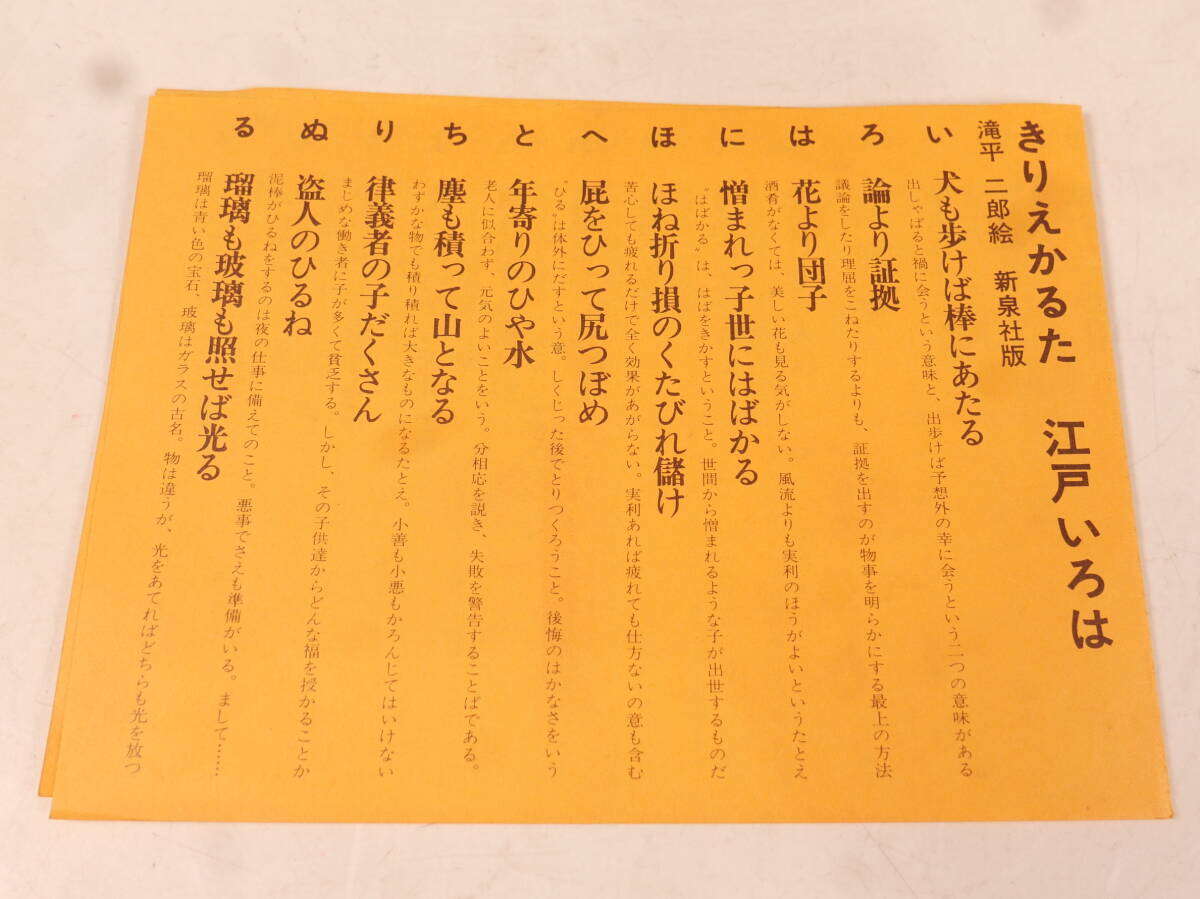 きりえかるた　江戸いろは
滝平　二郎絵　新泉社版
い　犬も歩けば棒にあたる
出しゃばると禍に会うという意味と、出歩けば予想外の幸に会うという二つの意味がある
ろ　論より証拠
議論をしたり理屈をこねたりするよりも、証拠を出すのが物事を明らかにする最上の方法
は　花より団子
酒肴がなくては、美しい花も見る気がしない。風流よりも実利のほうがよいというたとえ
に　憎まれっ子世にはばかる
〝はばかる〟は、はばをきかすということ。世間から憎まれるような子が出世するものだ
ほ　ほね折り損のくたびれ儲け
苦心しても疲れるだけで全く効果があがらない。実利あれば疲れても仕方ないの意も含む
へ　屁をひって尻つぼめ
〝ひる〟は体外にだすという意。しくじった後でとりつくろうこと。後悔のはかなさをいう
と　年寄りのひや水
老人に似合わず、元気のよいことをいう。分相応を説き、失敗を警告することばである。
ち　塵も積って山となる
わずかな物でも積り積れば大きなものになるたとえ。小善も小悪もかろんじてはいけない
り　律義者の子だくさん
まじめな働き者に子が多くて貧乏する。しかし、その子供達からどんな福を授かることか
ぬ　盗人のひるね
泥棒がひるねをするのは夜の仕事に備えてのこと。悪事でさえも準備がいる。まして……
る　瑠璃も玻璃も照せば光る
瑠璃は青い色の宝石、玻璃はガラスの古名。物は違うが、光をあてればどちらも光を放つ